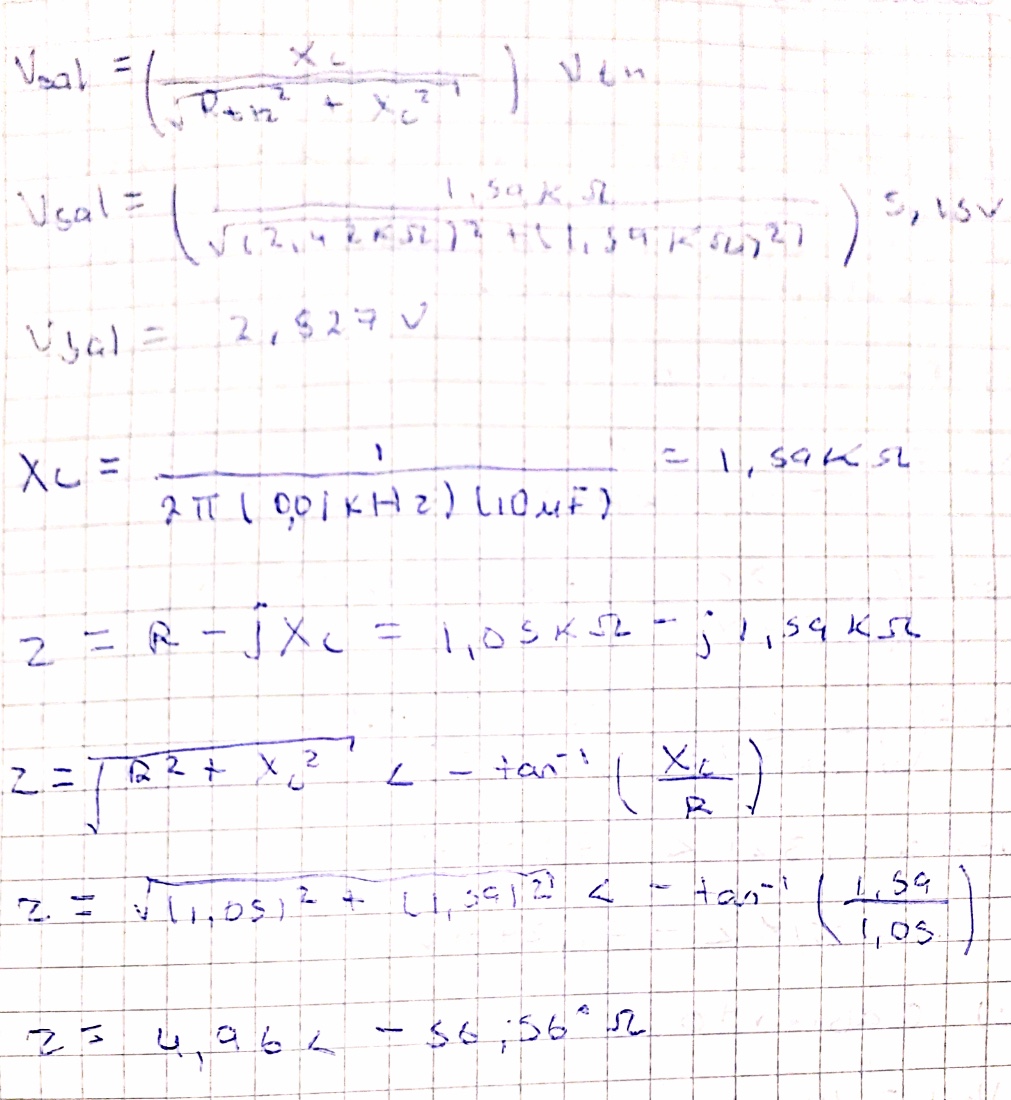 Vsal = ( XC / √(Rth² + XC²) ) Ven
Vsal = ( 1,59KΩ / √((2,42KΩ)² + (1,59KΩ)²) ) 5,15V
Vsal = 2,827 V
XC = 1 / 2π(0,01KHz)(10μF) = 1,59KΩ
Z = R - jXC = 1,05KΩ - j1,59KΩ
Z = √(R² + XC²) < - tan⁻¹ (XC / R)
Z = √((1,05)² + (1,59)²) < - tan⁻¹ (1,59 / 1,05)
Z = 4,96 < - 56,56° Ω